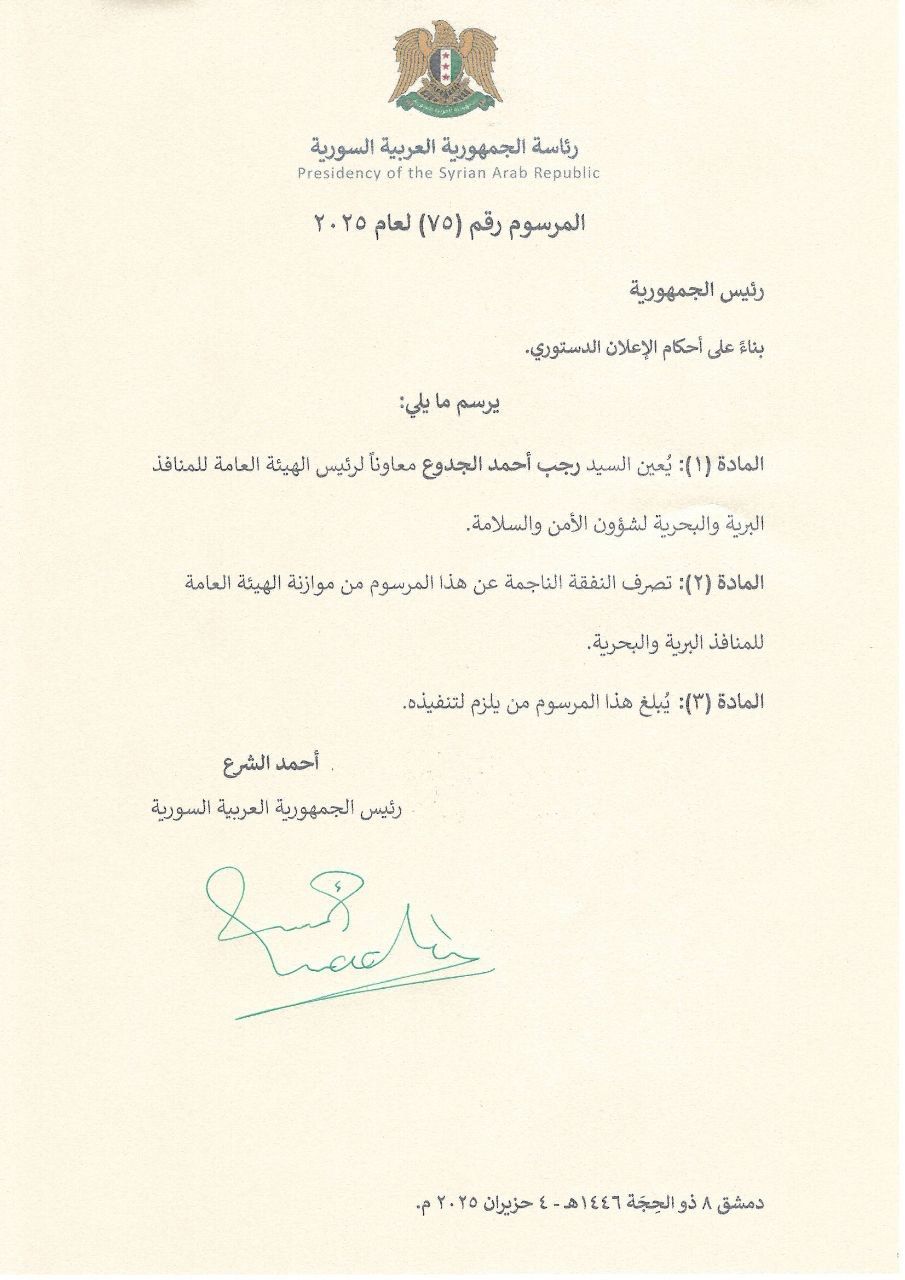 رئاسة الجمهورية العربية السورية
Presidency of the Syrian Arab Republic
المرسوم رقم (٧٥) لعام ٢٠٢٥
رئيس الجمهورية
بناءً على أحكام الإعلان الدستوري.
يرسم ما يلي:
المادة (١): يُعين السيد رجب أحمد الجدوع معاوناً لرئيس الهيئة العامة للمنافذ
البرية والبحرية لشؤون الأمن والسلامة.
المادة (٢): تصرف النفقة الناجمة عن هذا المرسوم من موازنة الهيئة العامة
للمنافذ البرية والبحرية.
المادة (٣): يُبلغ هذا المرسوم من يلزم لتنفيذه.
أحمد الشرع
رئيس الجمهورية العربية السورية
دمشق ٨ ذو الحِجَة ١٤٤٦هـ - ٤ حزيران ٢٠٢٥ م.